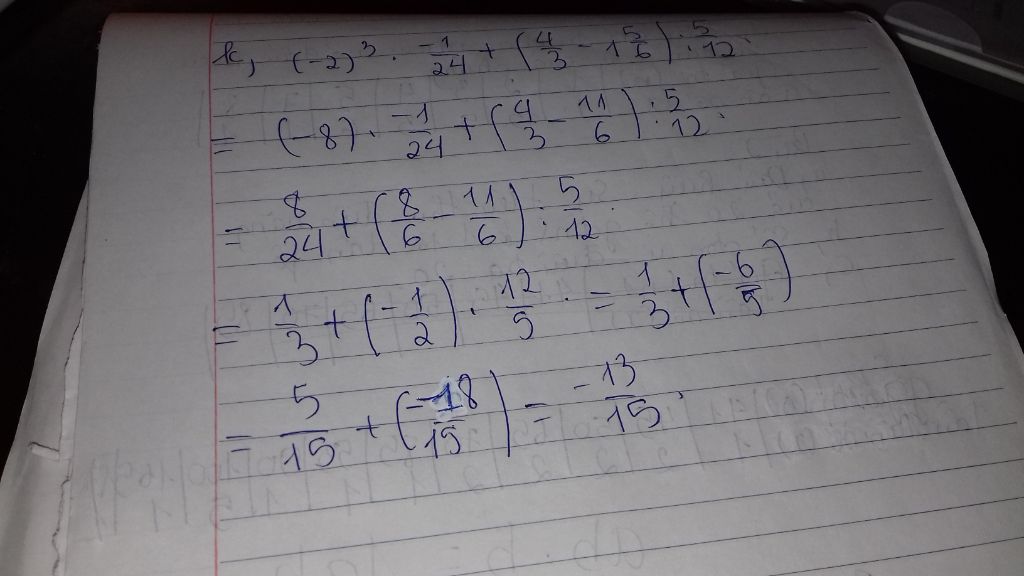 k, (-2)³ · -1/24 + (4/3 - 1 5/6) : 5/12.
= (-8) · -1/24 + (4/3 - 11/6) : 5/12.
= 8/24 + (8/6 - 11/6) : 5/12.
= 1/3 + (-1/2) · 12/5 . = 1/3 + (-6/5)
= 5/15 + (-18/15) = -13/15.